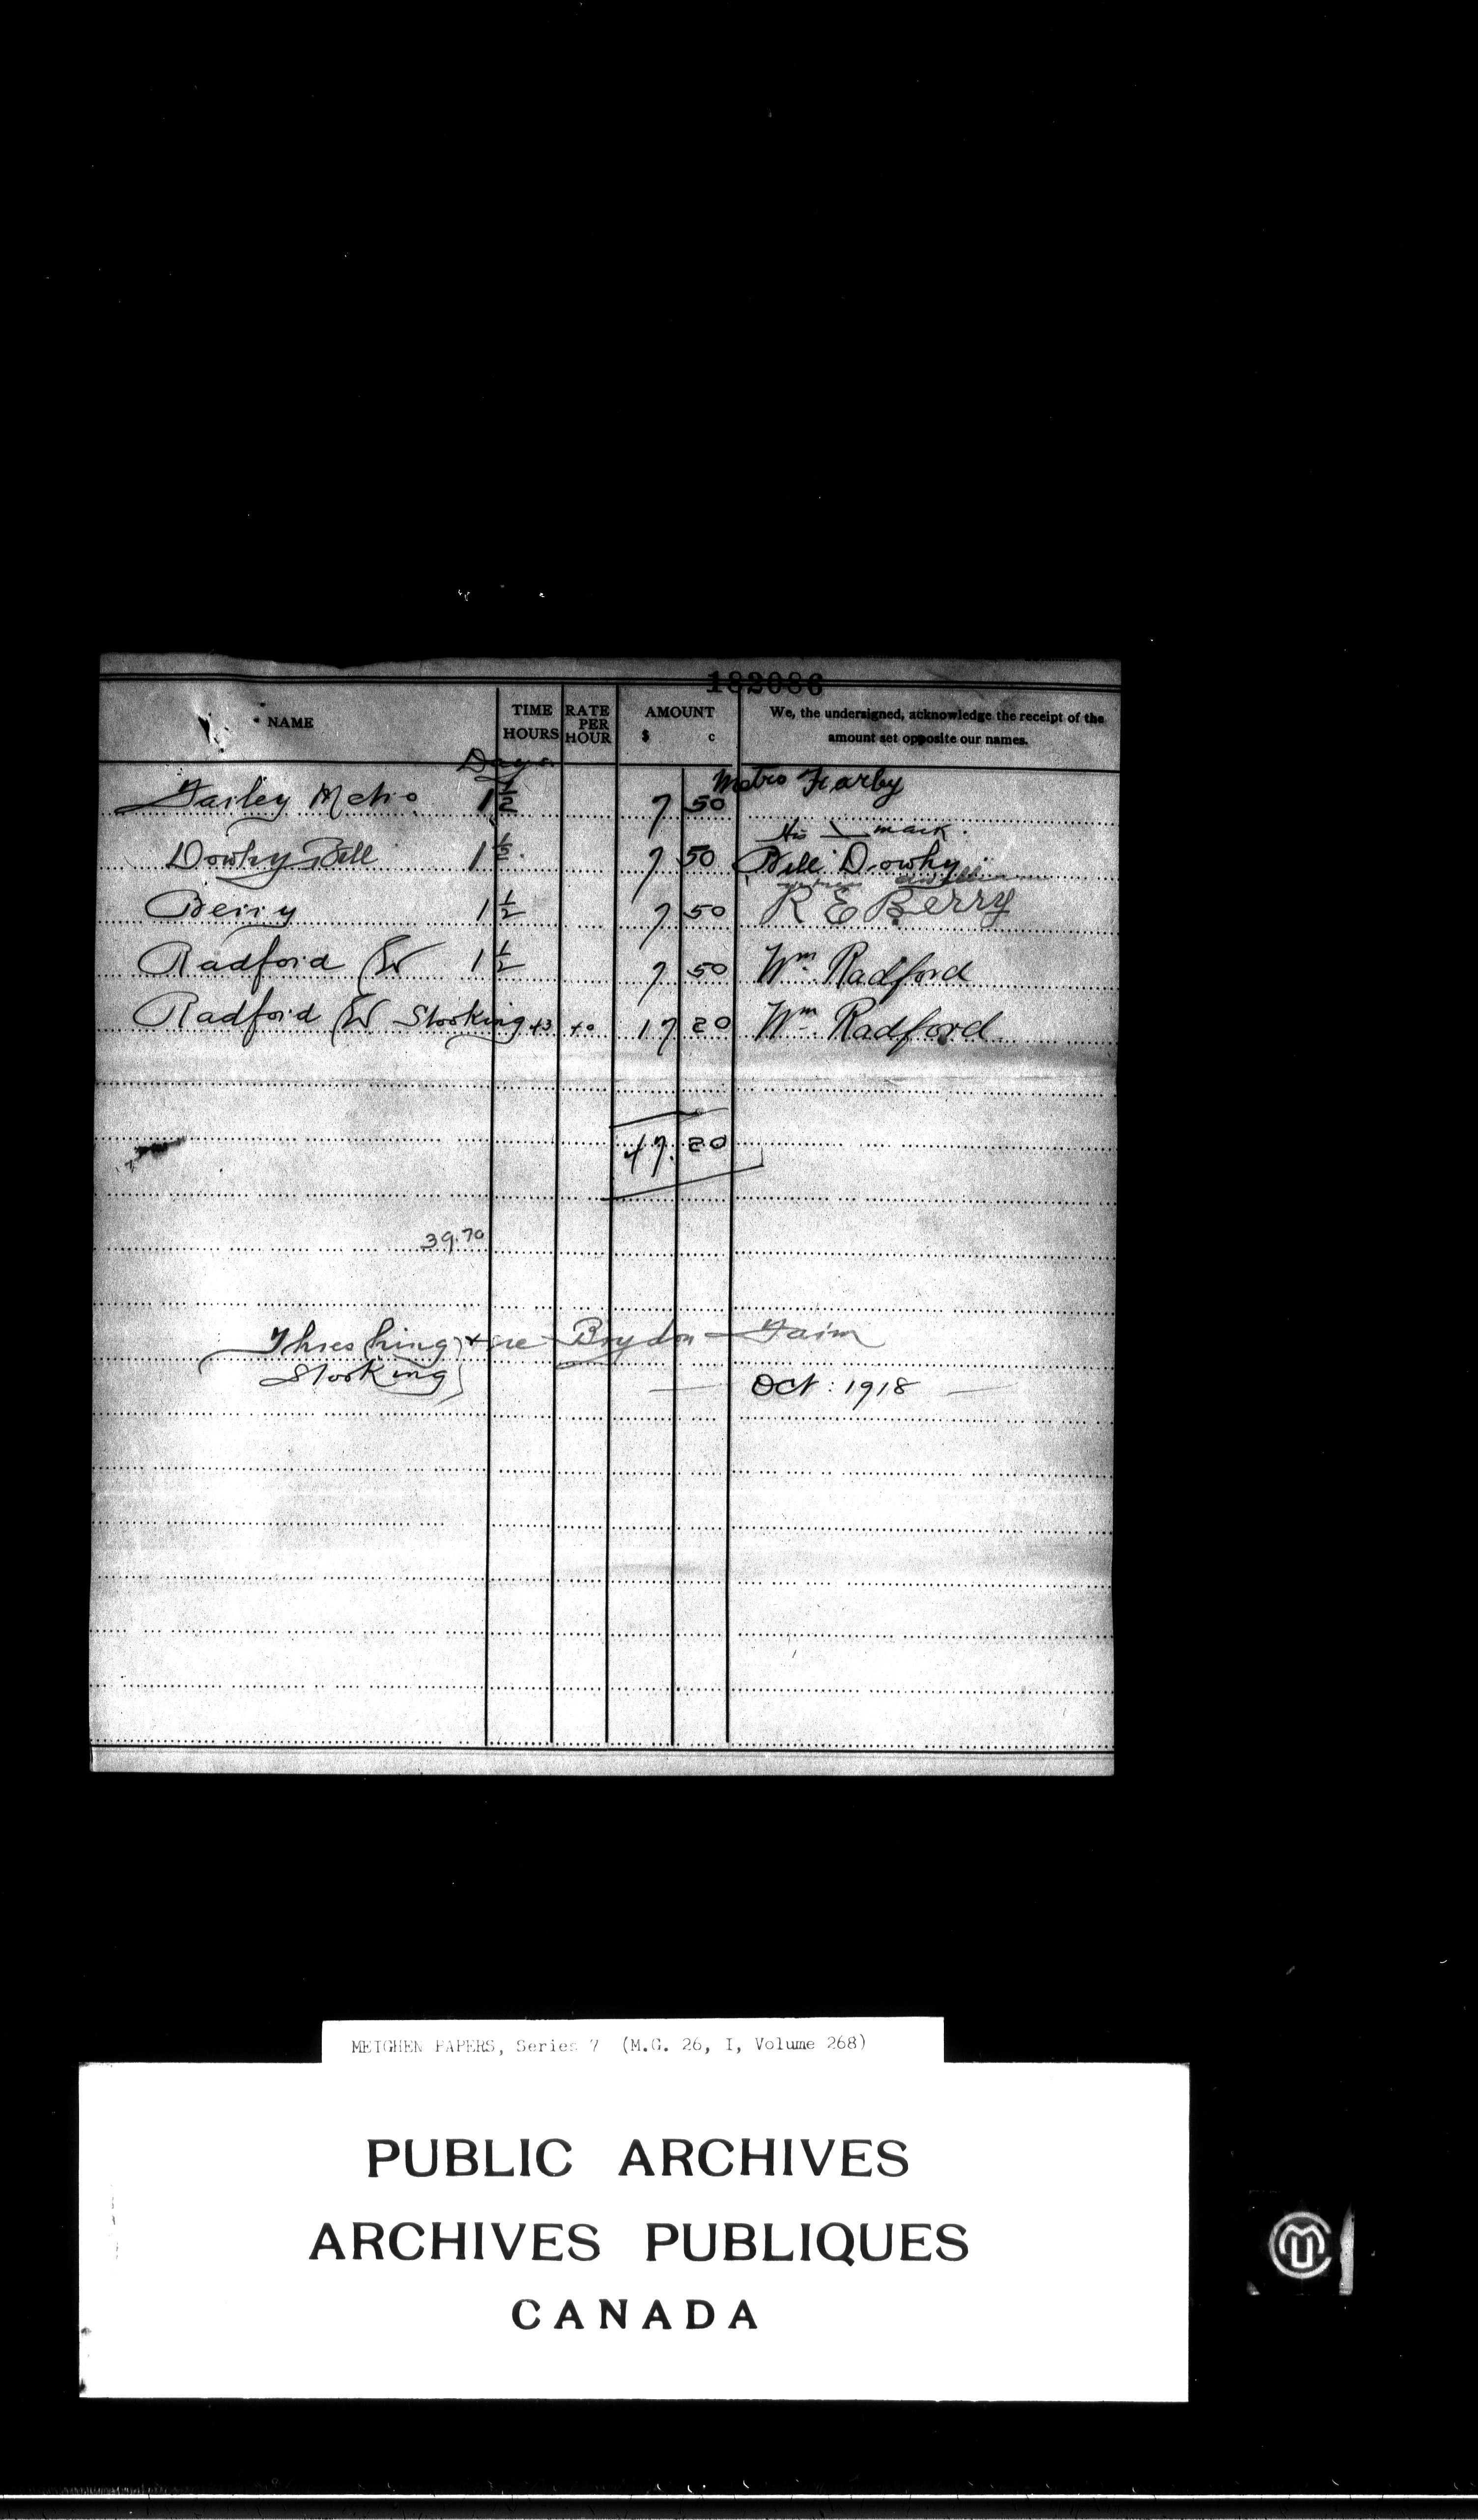 182086
NAME TIME HOURS RATE PER HOUR AMOUNT $ c We, the undersigned, acknowledge the receipt of the amount set opposite our names.
Days
Farley Metro 1 1/2 7 50 Metro Farby
His mark.
Dowhy Bill 1 1/2 7 50 Bill Dowhy
Berry 1 1/2 7 50 R E Berry
Radford W 1 1/2 7 50 Wm Radford
Radford W Stooking 43 40 17 20 Wm Radford
47.20
39.70
Threshing + re Brydon Farm
Stooking
Oct: 1918
MEIGHEN PAPERS, Series 7 (M.G. 26, I, Volume 268)
PUBLIC ARCHIVES
ARCHIVES PUBLIQUES
CANADA